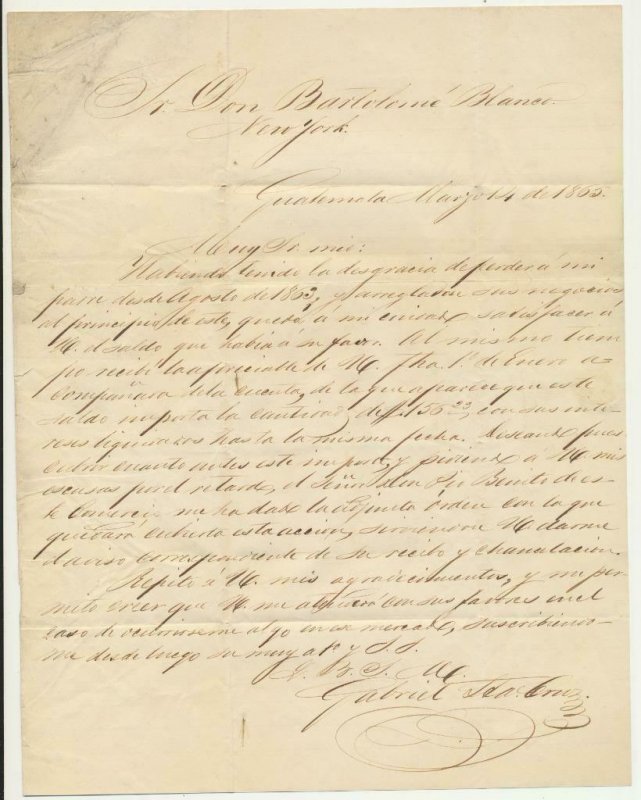 Sr. Don Bartolomé Blanco.
New York.
Guatemala Marzo 14 de 1855.
Muy Sr. mio:
Habiendo tenido la desgracia de perder á mi
padre desde Agosto de 1853, y arreglados sus negocios
al principio de este, quedó á mi cuidado satisfacer á
U. el saldo que habia á su favor. Al mismo tiem
po recibí la apreciable de U. fha. 1º de Enero a-
compañada de la cuenta, de la que aparece que este
saldo importa la cantidad de $155 23, con sus inte-
reses liquidados hasta la misma fecha. Deseando pues
cubrir cuanto antes este y pidiendo á U. mis
escusas por el retardo, el Señor Don Benito de es-
te Comercio me ha dado la adjunta órden con la que
quedará cubierta esta accion, sirviendose U. darme
el aviso correspondiente de su recibo y chancelacion.
Repito á U. mis agradecimientos, y me per-
mito creer que U. me con sus favores en el
caso de ocurrirseme algo en ese mercado, suscribiendo-
me desde luego su muy atº y S. S.
Q. B. S. M.
Gabriel Sta. Cruz.